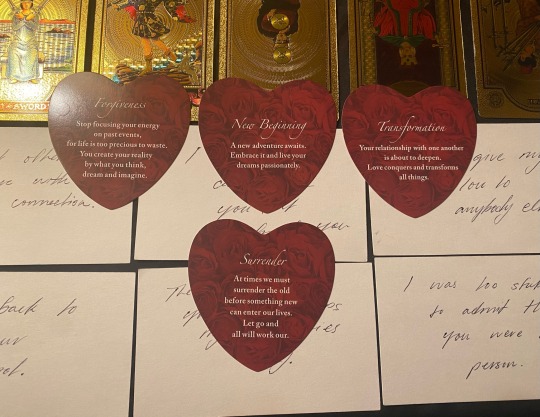 SWORD
Forgiveness
Stop focusing your energy
on past events,
for life is too precious to waste.
You create your reality
by what you think,
dream and imagine.
New Beginning
A new adventure awaits.
Embrace it and live your
dreams passionately.
Transformation
Your relationship with one another
is about to deepen.
Love conquers and transforms
all things.
with
connection.
I
you
you
give my
to
anybody
Surrender
At times we must
surrender the old
before something new
can enter our lives.
Let go and
all will work our.
back to
I was too
to admit
you were
person.